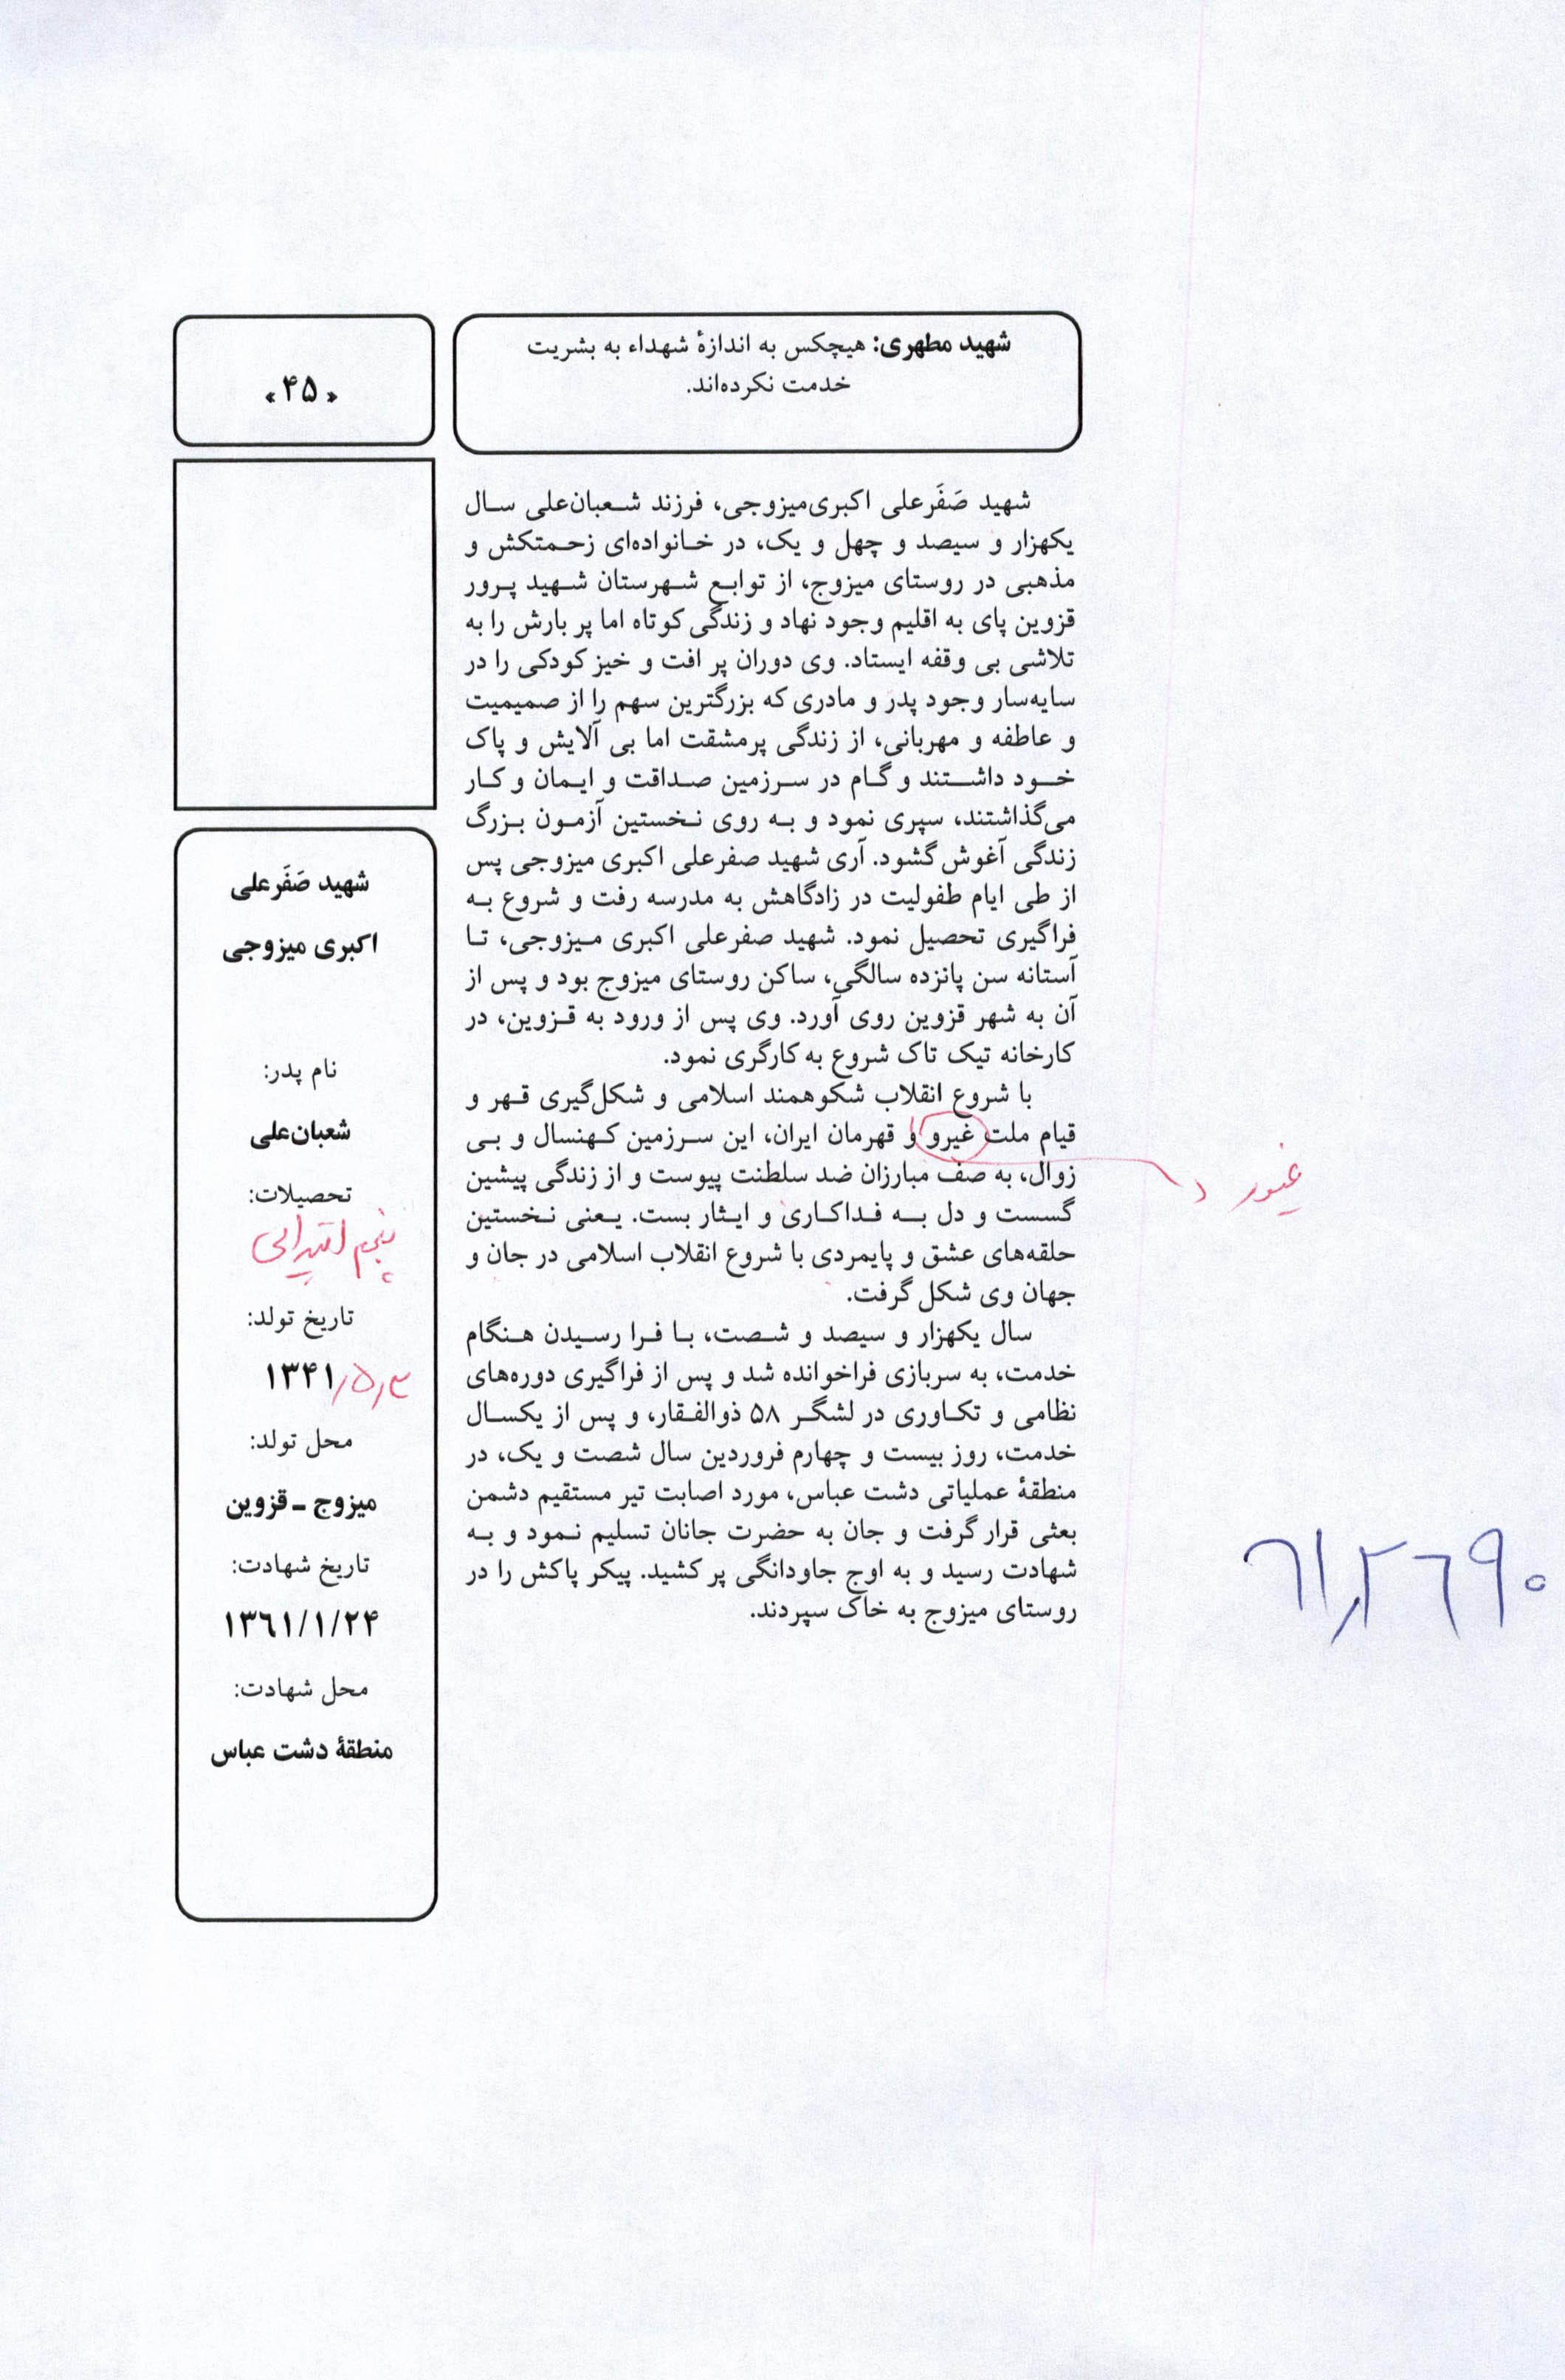 شهید مطهری: هیچکس به اندازهٔ شهداء به بشریت
خدمت نکرده‌اند.
«۴۵»
شهید صَفَرعلی اکبری‌میزوجی، فرزند شعبان‌علی سال
یکهزار و سیصد و چهل و یک، در خانواده‌ای زحمتکش و
مذهبی در روستای میزوج، از توابع شهرستان شهید پرور
قزوین پای به اقلیم وجود نهاد و زندگی کوتاه اما پر بارش را به
تلاشی بی وقفه ایستاد. وی دوران پر افت و خیز کودکی را در
سایه‌سار وجود پدر و مادری که بزرگترین سهم را از صمیمیت
و عاطفه و مهربانی، از زندگی پرمشقت اما بی آلایش و پاک
خود داشتند و گام در سرزمین صداقت و ایمان و کار
می‌گذاشتند، سپری نمود و به روی نخستین آزمون بزرگ
زندگی آغوش گشود. آری شهید صفرعلی اکبری میزوجی پس
از طی ایام طفولیت در زادگاهش به مدرسه رفت و شروع به
فراگیری تحصیل نمود. شهید صفرعلی اکبری میزوجی، تا
آستانه سن پانزده سالگی، ساکن روستای میزوج بود و پس از
آن به شهر قزوین روی آورد. وی پس از ورود به قزوین، در
کارخانه تیک تاک شروع به کارگری نمود.
با شروع انقلاب شکوهمند اسلامی و شکل‌گیری قهر و
قیام ملت غیرو و قهرمان ایران، این سرزمین کهنسال و بی
غیور
زوال، به صف مبارزان ضد سلطنت پیوست و از زندگی پیشین
گسست و دل به فداکاری و ایثار بست. یعنی نخستین
حلقه‌های عشق و پایمردی با شروع انقلاب اسلامی در جان و
جهان وی شکل گرفت.
سال یکهزار و سیصد و شصت، با فرا رسیدن هنگام
خدمت، به سربازی فراخوانده شد و پس از فراگیری دوره‌های
نظامی و تکاوری در لشگر ۵۸ ذوالفقار، و پس از یکسال
خدمت، روز بیست و چهارم فروردین سال شصت و یک، در
منطقهٔ عملیاتی دشت عباس، مورد اصابت تیر مستقیم دشمن
بعثی قرار گرفت و جان به حضرت جانان تسلیم نمود و به
شهادت رسید و به اوج جاودانگی پر کشید. پیکر پاکش را در
روستای میزوج به خاک سپردند.
شهید صَفَرعلی
اکبری میزوجی
نام پدر:
شعبان‌علی
تحصیلات:
پنجم ابتدایی
تاریخ تولد:
۱۳۴۱/۵/۳
محل تولد:
میزوج ـ قزوین
تاریخ شهادت:
۱۳۶۱/۱/۲۴
محل شهادت:
منطقهٔ دشت عباس